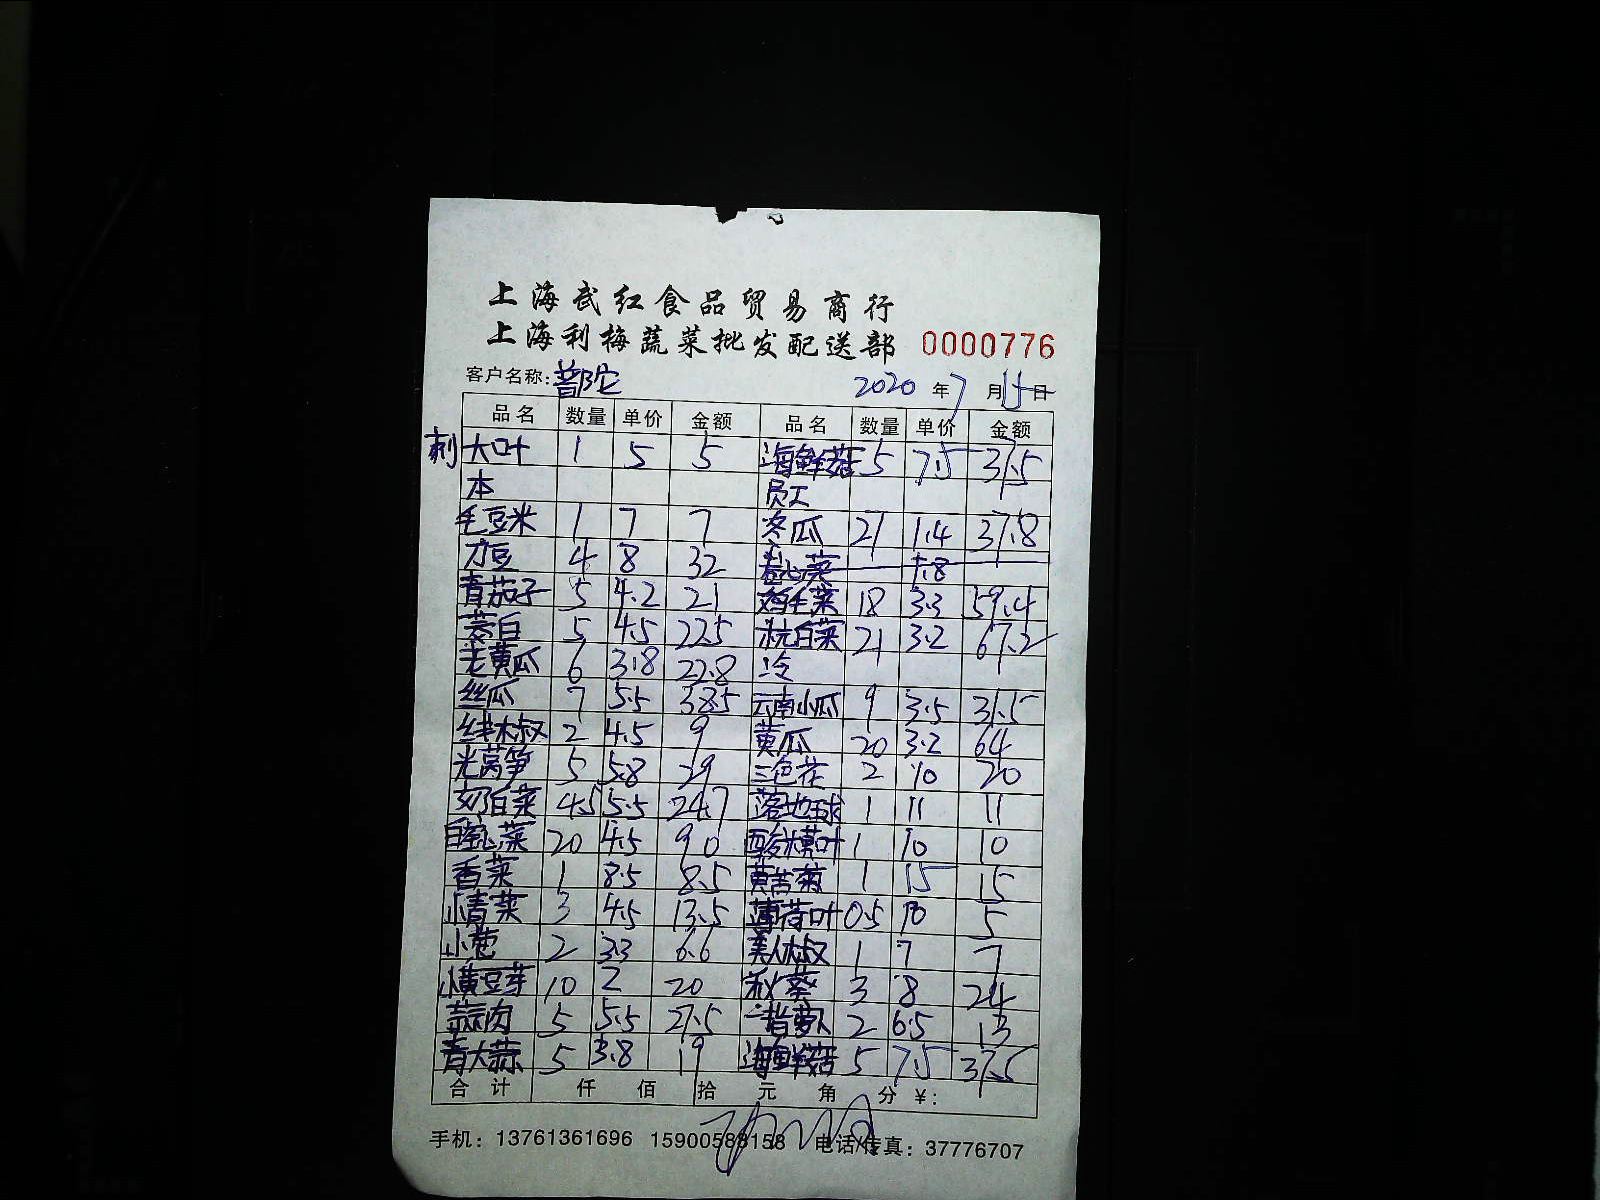 上海武红食品贸易商行
上海利梅蔬菜批发配送部 0000776
客户名称：普陀 2020年7月15日
品名 数量 单价 金额 品名 数量 单价 金额
刺 大叶 1 5 5 海鲜菇 5 7.5 37.5
本 员工
毛豆米 1 7 7 冬瓜 21 1.4 37.8
刀豆 4 8 32 卷心菜 1.8
青茄子 5 4.2 21 鸡毛菜 18 3.3 59.4
茭白 5 4.5 22.5 杭白菜 21 3.2 67.2
老黄瓜 6 3.8 22.8 冷
丝瓜 7 5.5 38.5 云南小瓜 9 3.5 31.5
线木叔 2 4.5 9 黄瓜 20 3.2 64
光莴笋 5 5.8 29 三色花 2 10 20
奶白菜 4.5 5.5 24.7 落地球 1 11 11
20 4.5 90 酸模叶 1 10 10
香菜 1 8.5 8.5 黄苦菊 1 15 15
小青菜 3 4.5 13.5 薄荷叶 0.5 10 5
小葱 2 3.3 6.6 美人木叔 1 7 7
小黄豆芽 10 2 20 秋葵 3 8 24
蒜肉 5 5.5 27.5 一指萝卜 2 6.5 13
青大蒜 5 3.8 19 海鲜菇 5 7.5 37.5
合计 仟 佰 拾 元 角 分 ¥：
手机：13761361696 15900588158 电话/传真：37776707